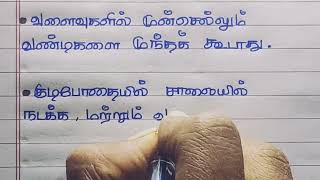 • வளைவுகளில் முன்செல்லும்
வண்டிகளை முந்தக் கூடாது.
• குடிபோதையில் சாலையில்
நடக்க, மற்றும் வ